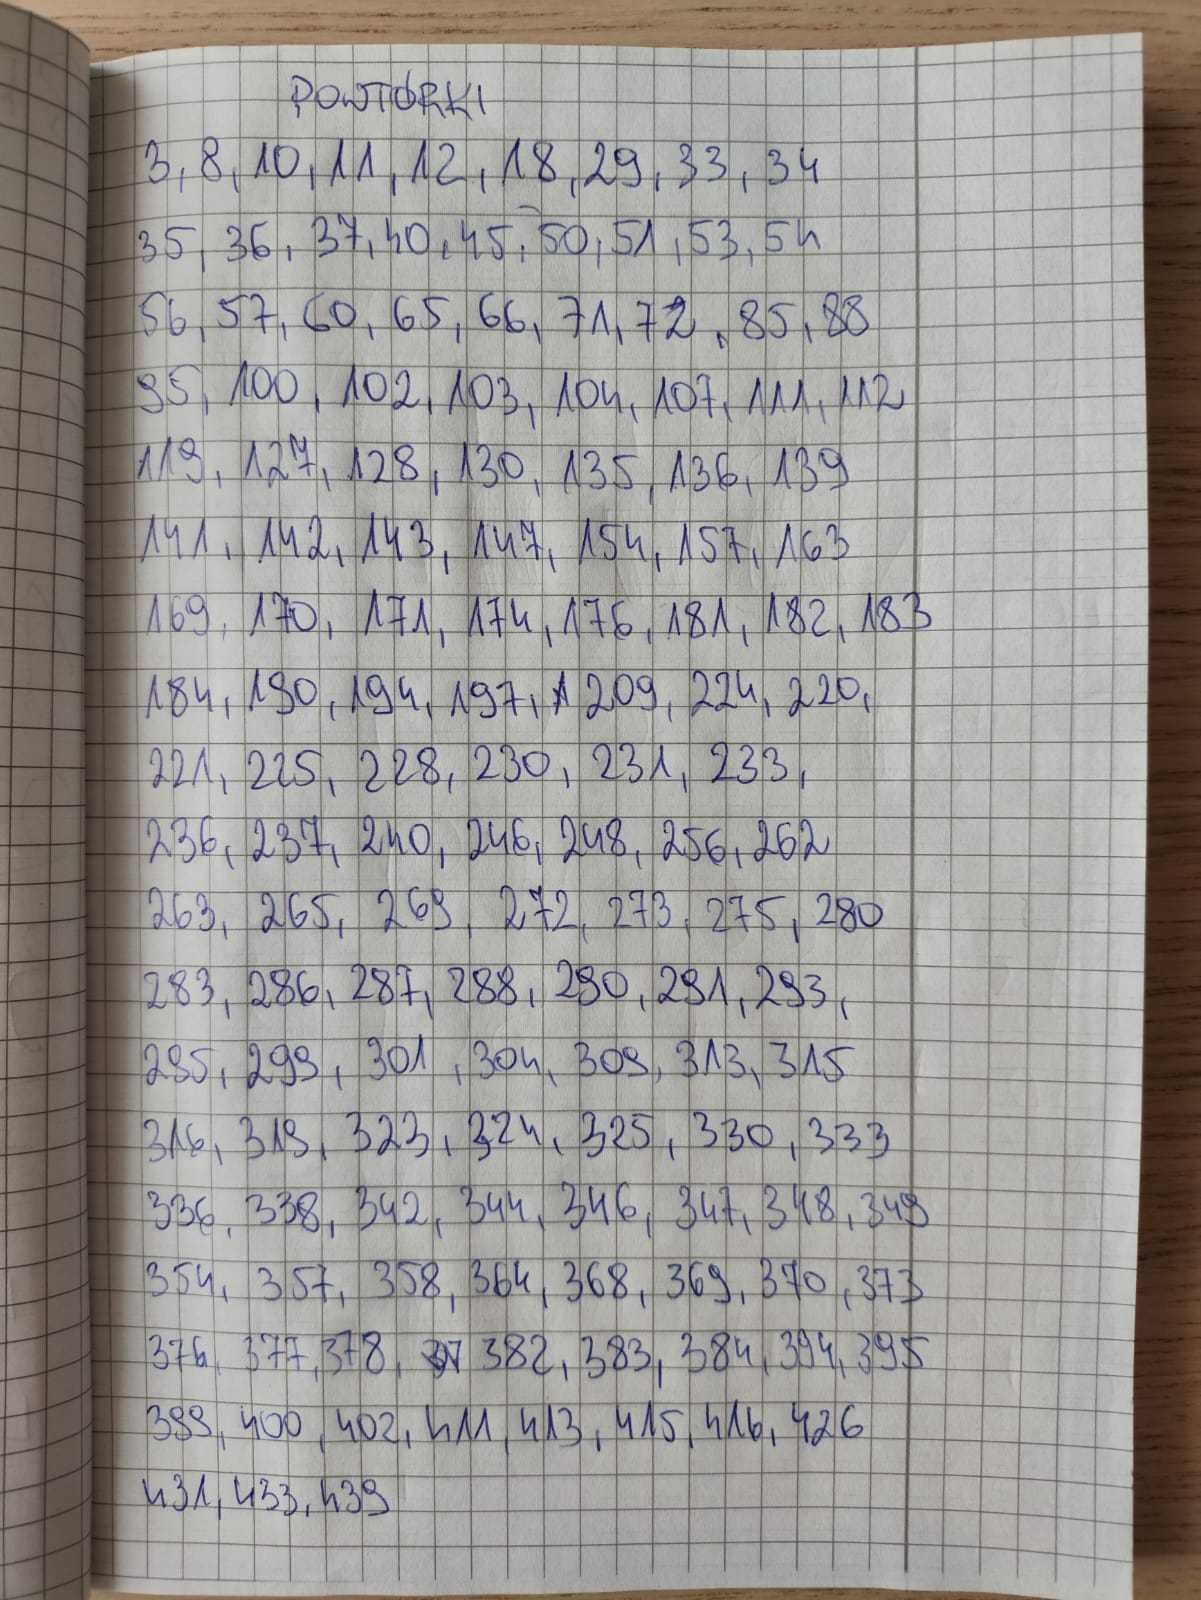 POWTÓRKI
3, 8, 10, 11, 12, 18, 29, 33, 34
35, 36, 37, 40, 45, 50, 51, 53, 54
56, 57, 60, 65, 66, 71, 72, 85, 88
95, 100, 102, 103, 104, 107, 111, 112
119, 127, 128, 130, 135, 136, 139
141, 142, 143, 147, 154, 157, 163
169, 170, 171, 174, 176, 181, 182, 183
184, 190, 194, 197, 209, 224, 220,
221, 225, 228, 230, 231, 233,
236, 237, 240, 246, 248, 256, 262
263, 265, 269, 272, 273, 275, 280
283, 286, 287, 288, 290, 291, 293,
295, 299, 301, 304, 309, 313, 315
316, 319, 323, 324, 325, 330, 333
336, 338, 342, 344, 346, 347, 348, 349
354, 357, 358, 364, 368, 369, 370, 373
376, 377, 378, 382, 383, 384, 394, 395
399, 400, 402, 411, 413, 415, 416, 426
431, 433, 439